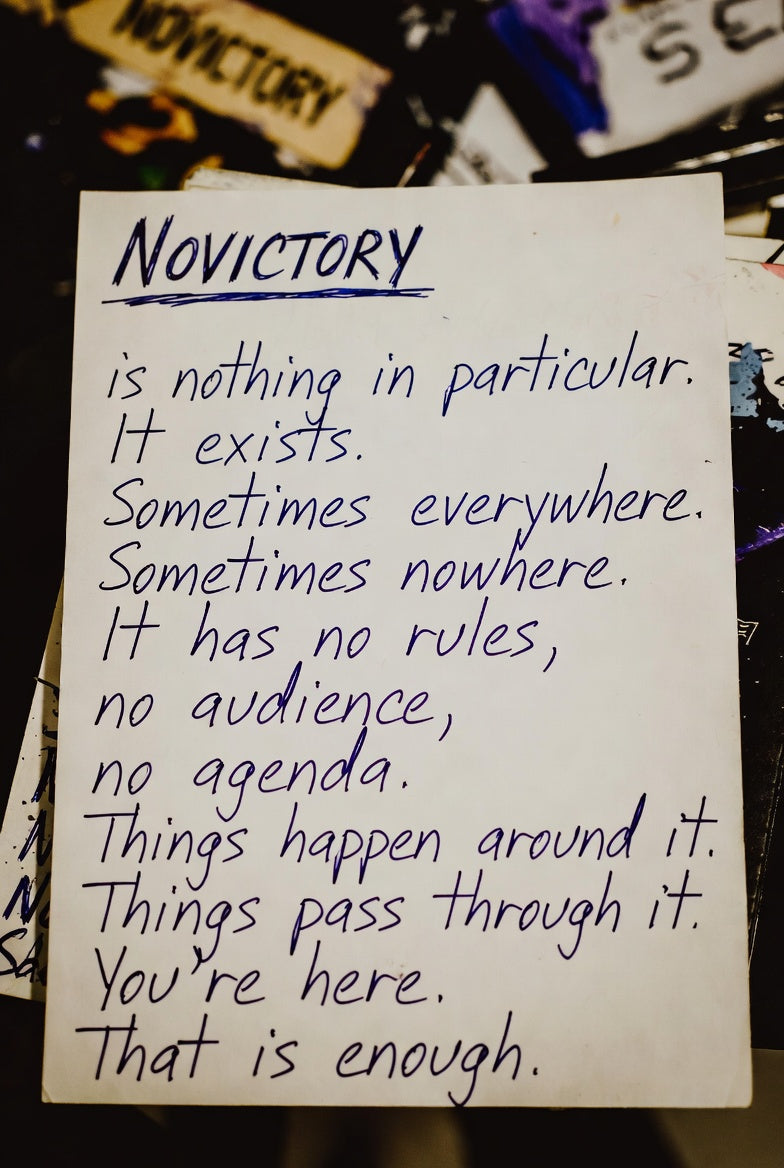 NOVICTORY
NOVICTORY
is nothing in particular.
It exists.
Sometimes everywhere.
Sometimes nowhere.
It has no rules,
no audience,
no agenda.
Things happen around it.
Things pass through it.
You're here.
That is enough.